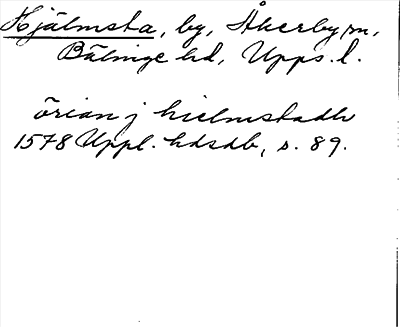 Hjälmsta, by, Åkerby sn,
Bälinge hd, Upps. l.
örian j hielmstadh
1578 Uppl. hdsdb, s. 89.